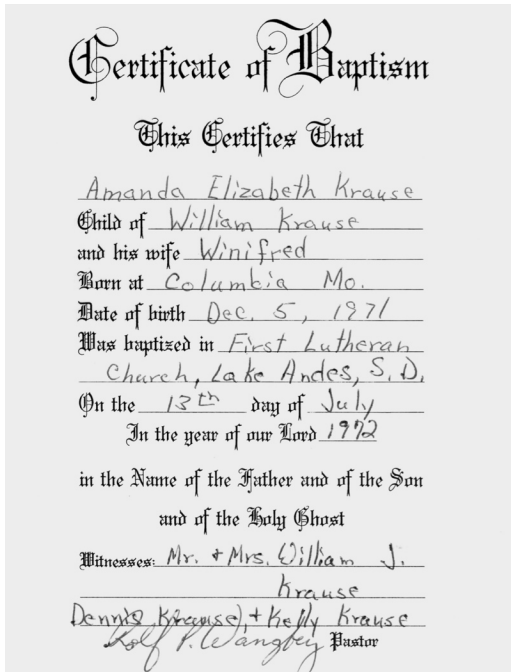 Certificate of Baptism
This Certifies That
Amanda Elizabeth Krause
Child of William Krause
and his wife Winifred
Born at Columbia Mo.
Date of birth Dec. 5, 1971
Was baptized in First Lutheran
Church, Lake Andes, S.D.
On the 13th day of July
In the year of our Lord 1972
in the Name of the Father and of the Son
and of the Holy Ghost
Witnesses: Mr. + Mrs. William J.
Krause
Dennis Krause), + Kelly Krause
Rolf P. Pastor